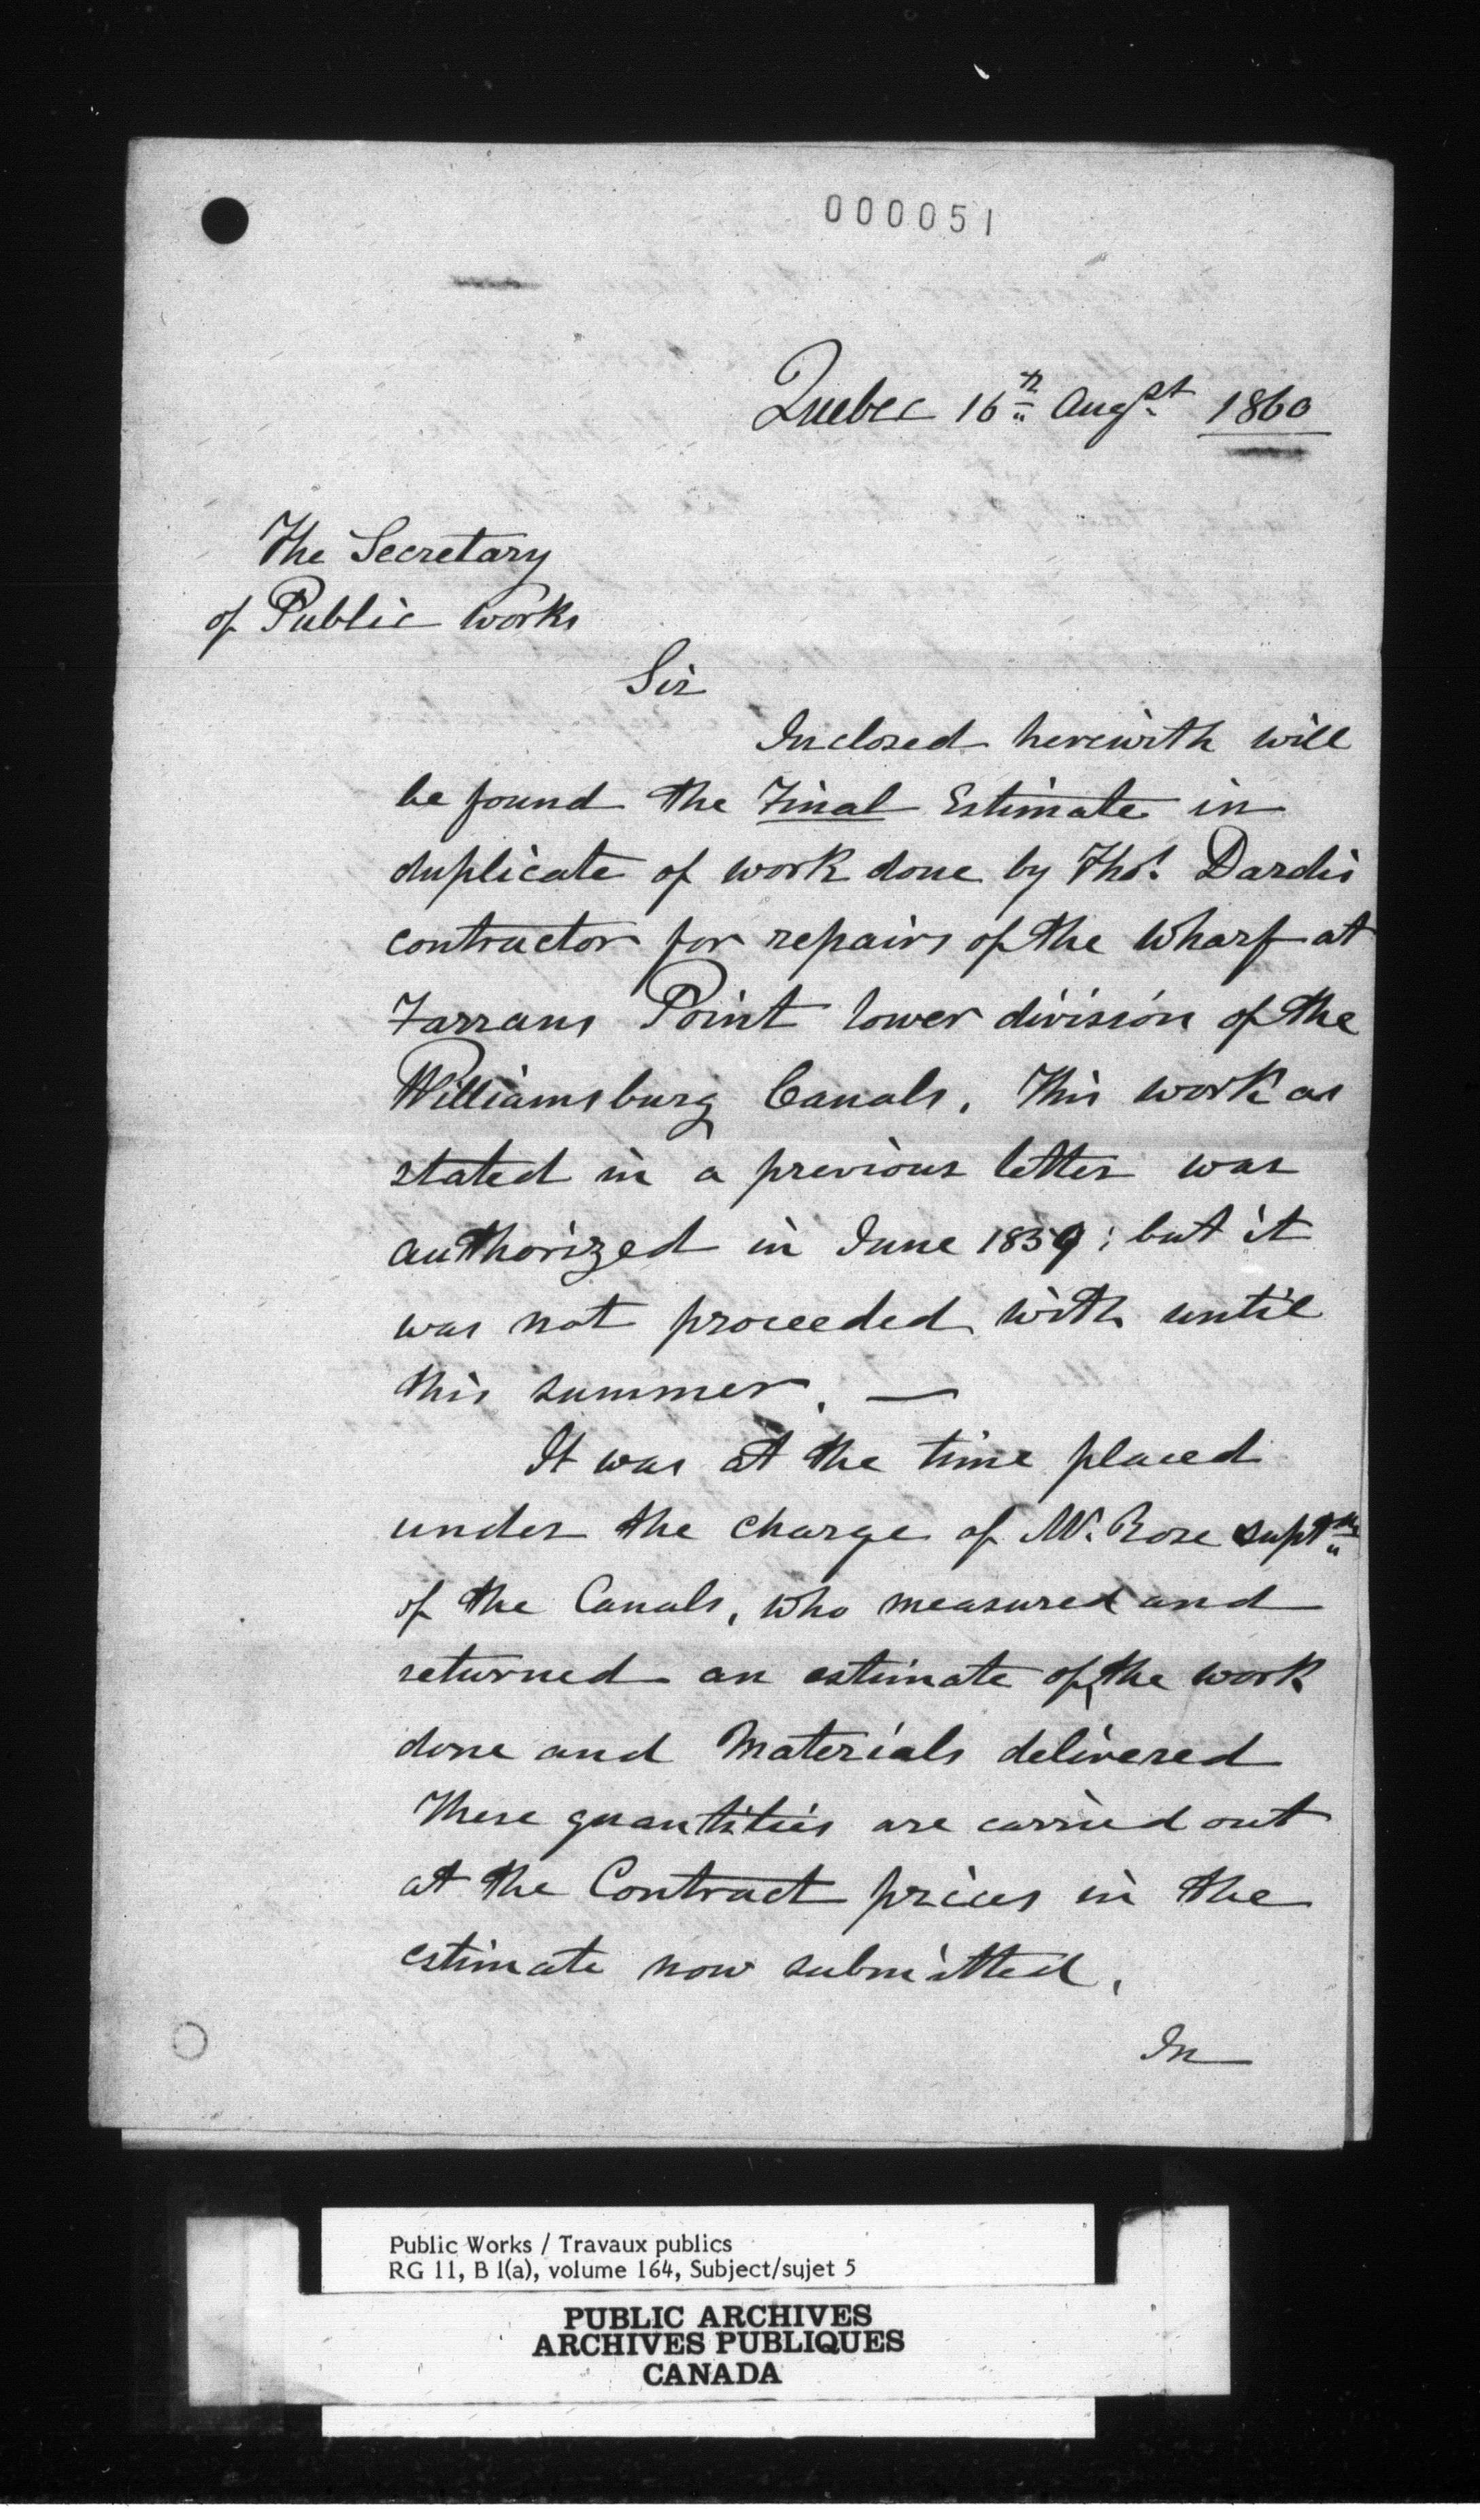 000051
Quebec 16th Augst 1860
The Secretary
of Public Works
Sir
Inclosed herewith will
be found the Final Estimate in
duplicate of work done by Thos. Dardis
contractor for repairs of the Wharf at
Farrans Point lower division of the
Williamsburg Canals. This work as
stated in a previous letter was
authorized in June 1859; but it
was not proceeded with until
this summer. —
It was at the time placed
under the charge of Mr. Rose supt
of the Canals, who measured and
returned an estimate of the work
done and Materials delivered
These quantities are carried out
at the Contract prices in the
estimate now submitted.
In
Public Works / Travaux publics
RG 11, B 1(a), volume 164, Subject/sujet 5
PUBLIC ARCHIVES
ARCHIVES PUBLIQUES
CANADA